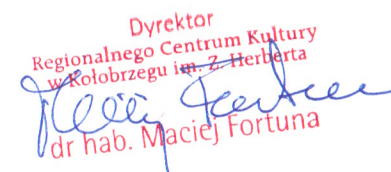 Dyrektor
Regionalnego Centrum Kultury
w Kołobrzegu im. Z. Herberta
dr hab. Maciej Fortuna